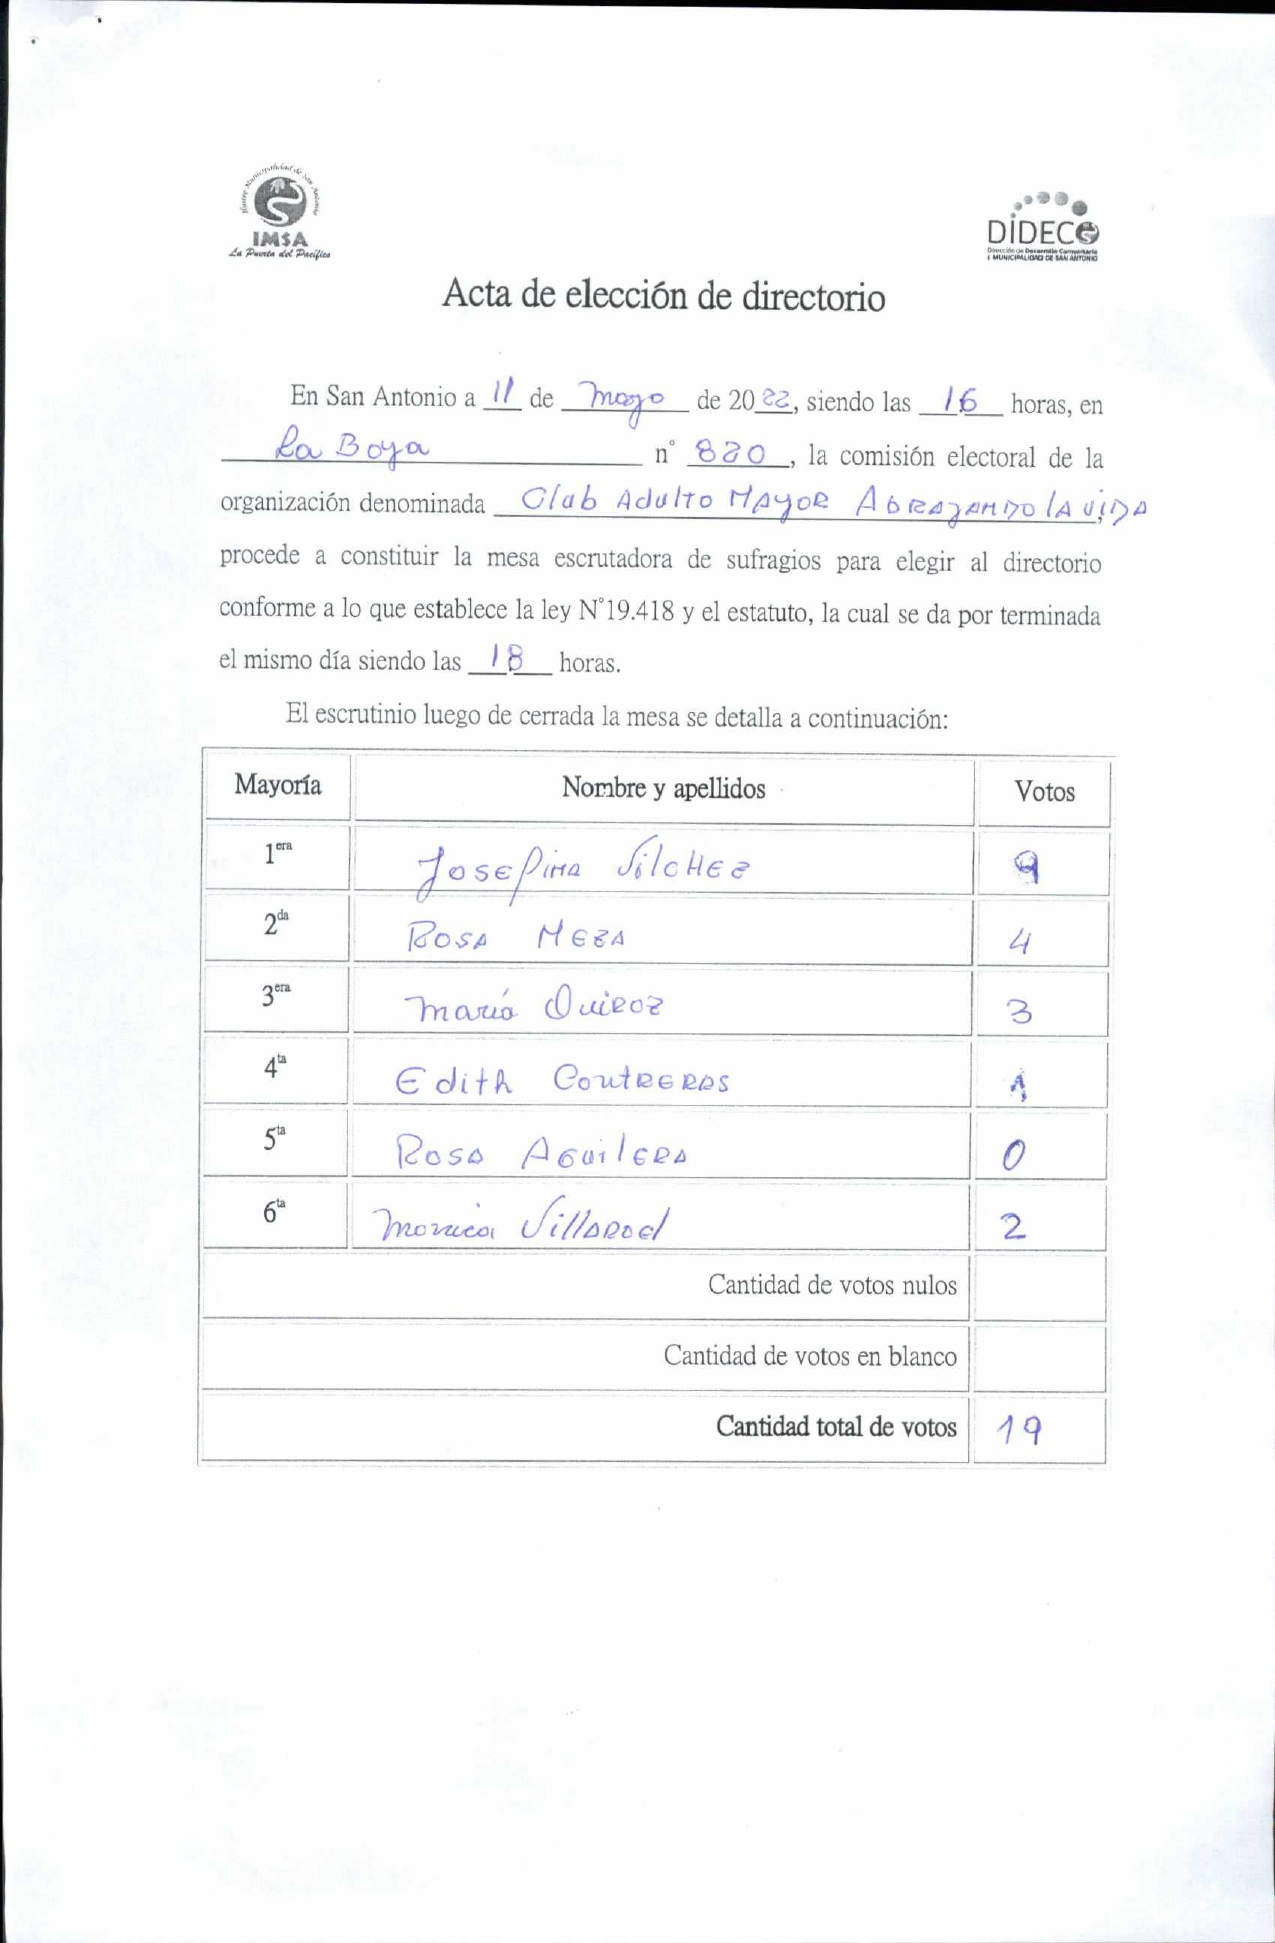 Ilustre Municipalidad de San Antonio
IMSA
La Puerta del Pacífico
DIDECO
Dirección de Desarrollo Comunitario
I MUNICIPALIDAD DE SAN ANTONIO
Acta de elección de directorio
En San Antonio a 11 de mayo de 2022, siendo las 16 horas, en
La Boya n° 820, la comisión electoral de la
organización denominada Club Adulto Mayor Abrazando la vida,
procede a constituir la mesa escrutadora de sufragios para elegir al directorio
conforme a lo que establece la ley N°19.418 y el estatuto, la cual se da por terminada
el mismo día siendo las 18 horas.
El escrutinio luego de cerrada la mesa se detalla a continuación:
Mayoría Nombre y apellidos Votos
1era Josefina Vilchez 9
2da Rosa Meza 4
3era María Quiroz 3
4ta Edith Contreras 1
5ta Rosa Aguilera 0
6ta Monica Villaroel 2
Cantidad de votos nulos
Cantidad de votos en blanco
Cantidad total de votos 19